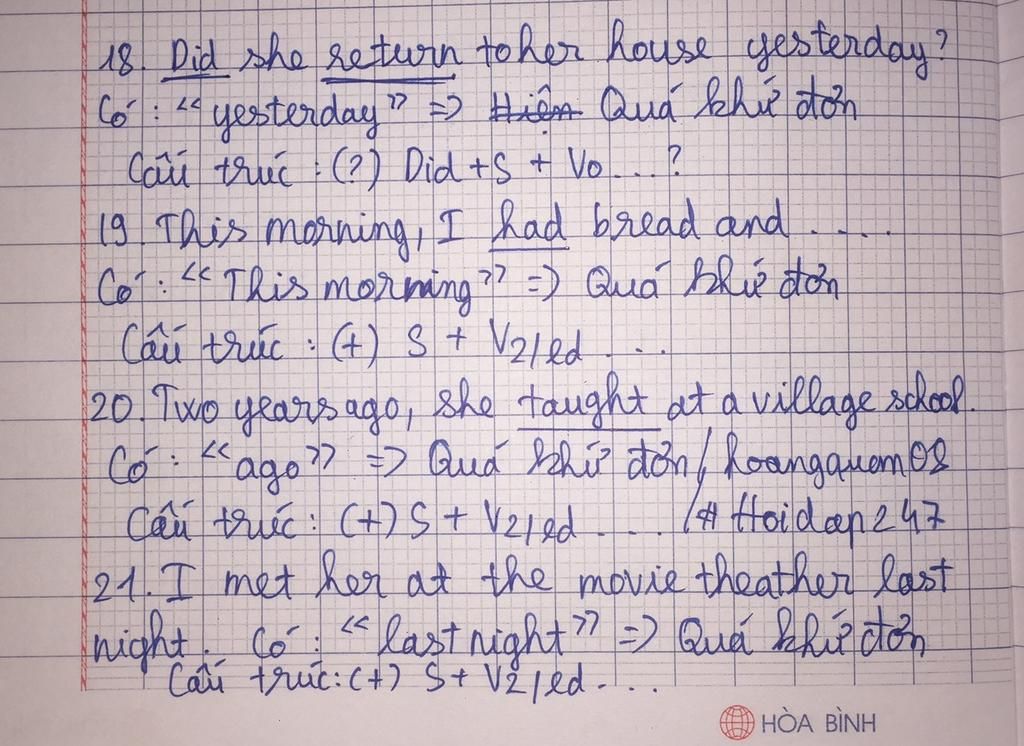 18. Did she return to her house yesterday?
Có: "yesterday" => Hiện Quá khứ đơn
Cấu trúc: (?) Did + S + Vo...?
19. This morning, I had bread and ....
Có: "This morning" => Quá khứ đơn
Cấu trúc: (+) S + V2/ed ...
20. Two years ago, she taught at a village school.
Có: "ago" => Quá khứ đơn/ hoangquem08
Cấu trúc: (+) S + V2/ed .... /# Hoidap247
21. I met her at the movie theather last
night. Có: "last night" => Quá khứ đơn
Cấu trúc: (+) S + V2/ed....
HÒA BÌNH